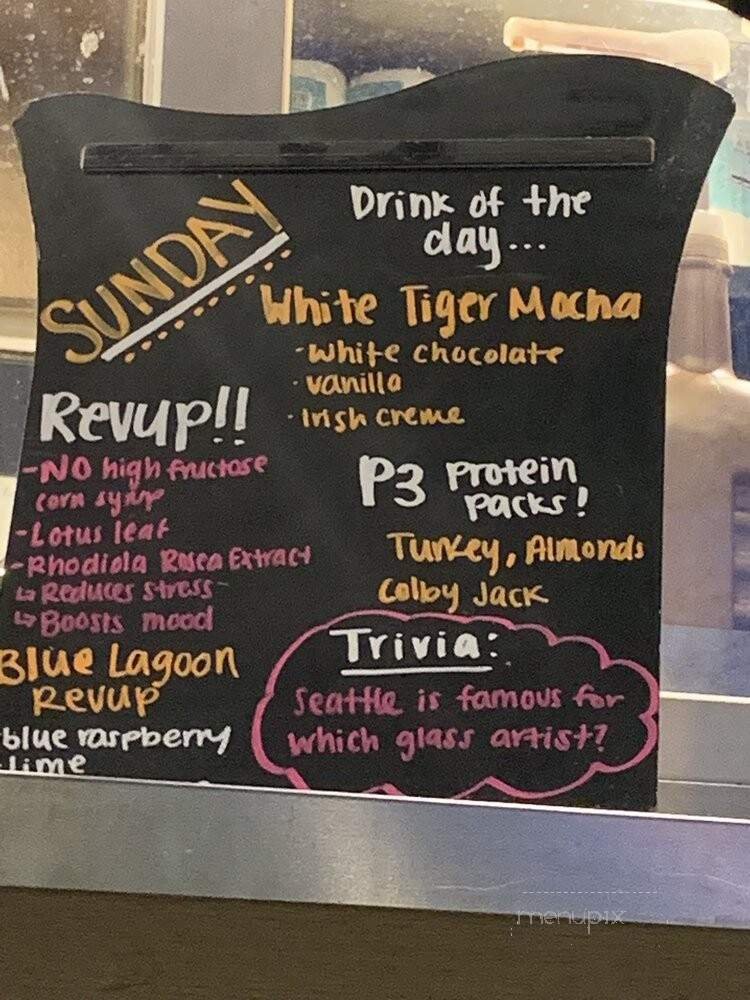 SUNDAY
Drink of the
day...
White Tiger Mocha
-white chocolate
·vanilla
·Irish creme
Revup!!
-NO high fructose
corn syrup
-Lotus leaf
-Rhodiola Rosea Extract
↳ Reduces stress
↳ Boosts mood
Blue Lagoon
Revup
-blue raspberry
-lime
P3 Protein
Packs!
Turkey, Almonds
Colby Jack
Trivia:
Seattle is famous for
which glass artist?
menupix